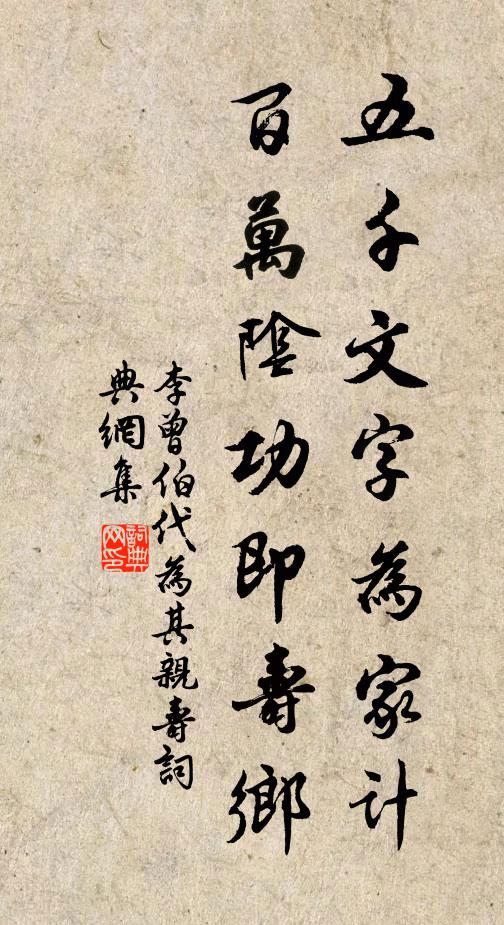 五千文字為家计
百萬陰功即壽鄉
李曾伯代為其親壽詞
典網集
詞典網印